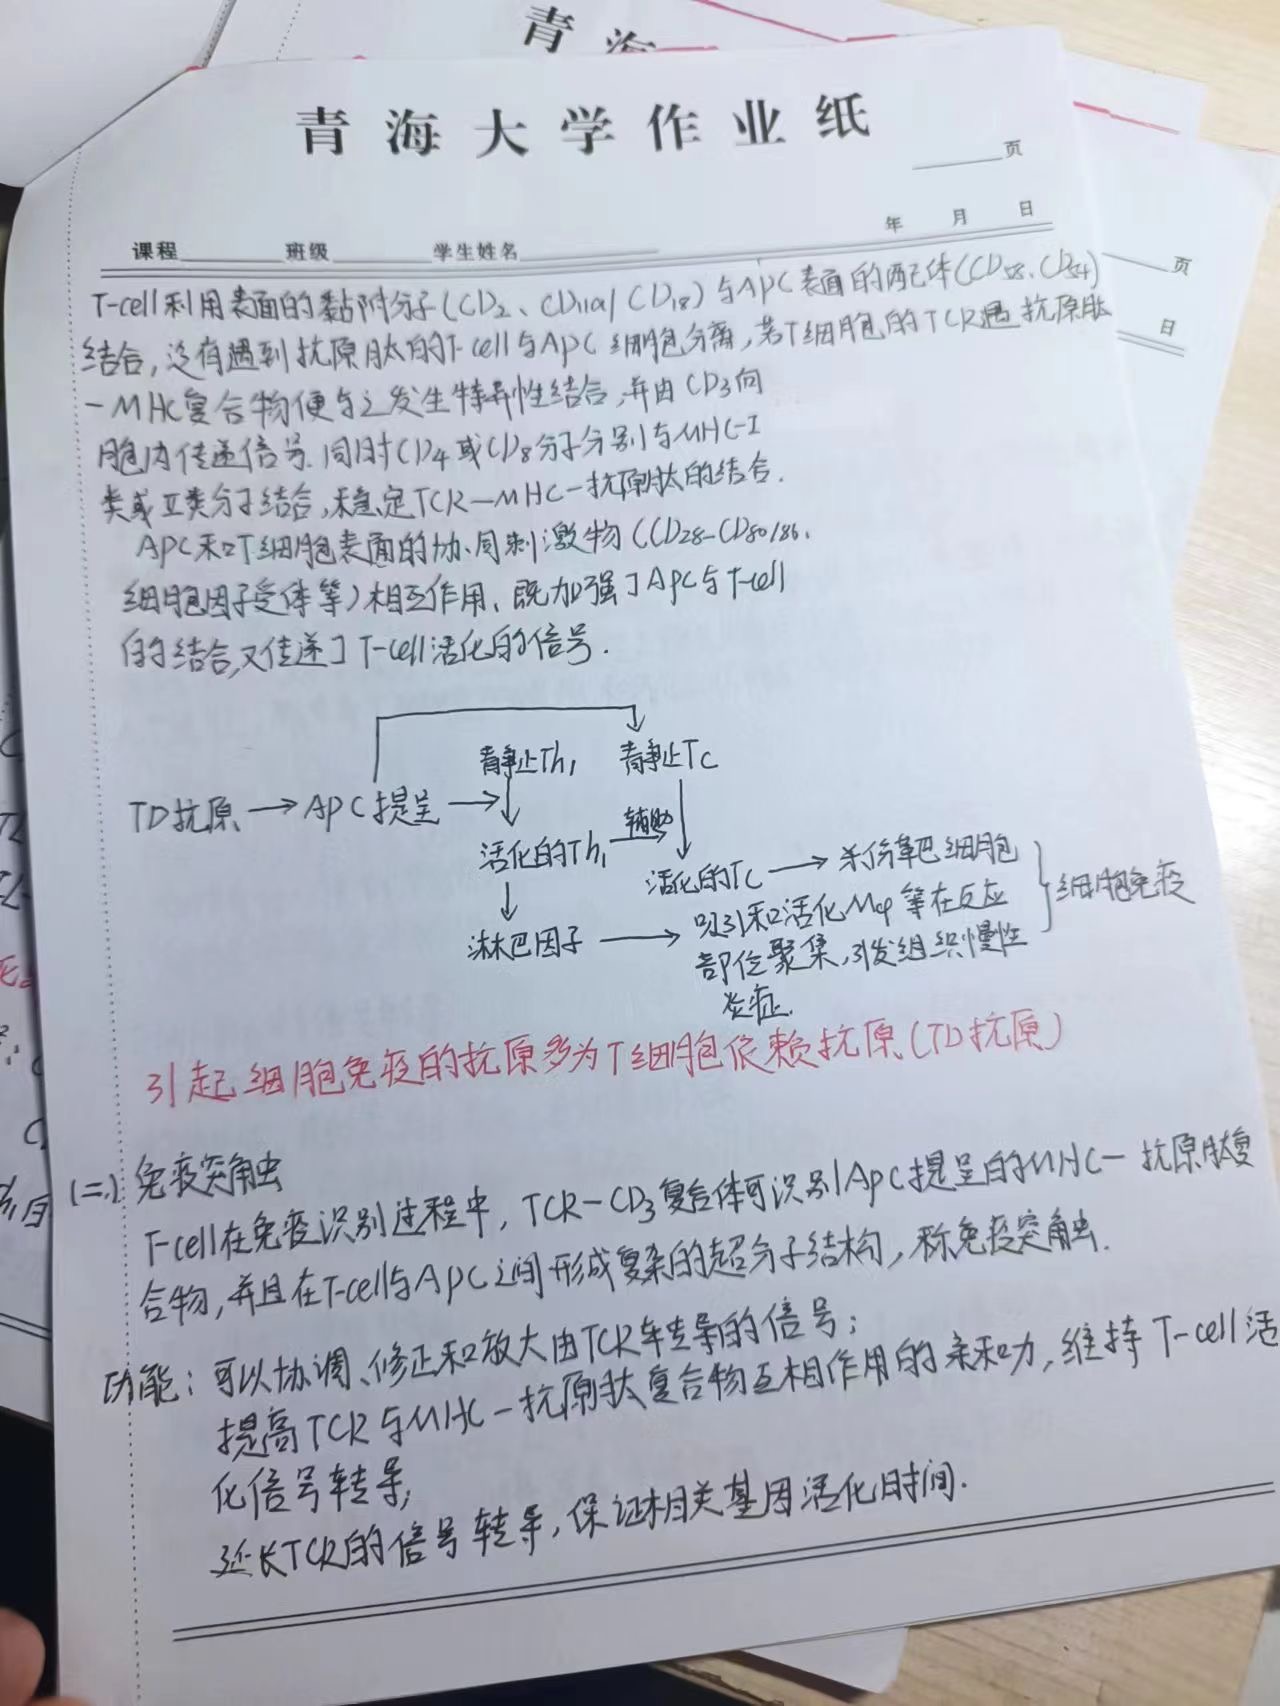 青海
青海大学作业纸
页
年 月 日
课程 班级 学生姓名
页
日
T-cell利用表面的黏附分子(CD2、CD11a/CD18)与APC表面的配体(CD58、CD54)
结合,没有遇到抗原肽的T-cell与APC细胞分离,若T细胞的TCR遇抗原肽
-MHC复合物便与之发生特异性结合,并由CD3向
胞内传递信号.同时CD4或CD8分子分别与MHC-I
类或II类分子结合,稳定TCR-MHC-抗原肽的结合.
APC和T细胞表面的协同刺激物(CD28-CD80/86、
细胞因子受体等)相互作用、既加强了APC与T-cell
的结合,又传递了T-cell活化的信号.
静止Th1 静止Tc
TD抗原→APC提呈→
辅助
活化的Th1 活化的Tc→杀伤靶细胞
淋巴因子→吸引和活化Mφ等在反应
部位聚集,引发组织慢性
炎症.
细胞免疫
引起细胞免疫的抗原多为T细胞依赖抗原(TD抗原)
(二)免疫突触
T-cell在免疫识别过程中,TCR-CD3复合体可识别APC提呈的MHC-抗原肽复
合物,并且在T-cell与APC之间形成复杂的超分子结构,称免疫突触.
功能:可以协调、修正和放大由TCR转导的信号;
提高TCR与MHC-抗原肽复合物互相作用的亲和力,维持T-cell活
化信号转导;
延长TCR的信号转导,保证相关基因活化时间.